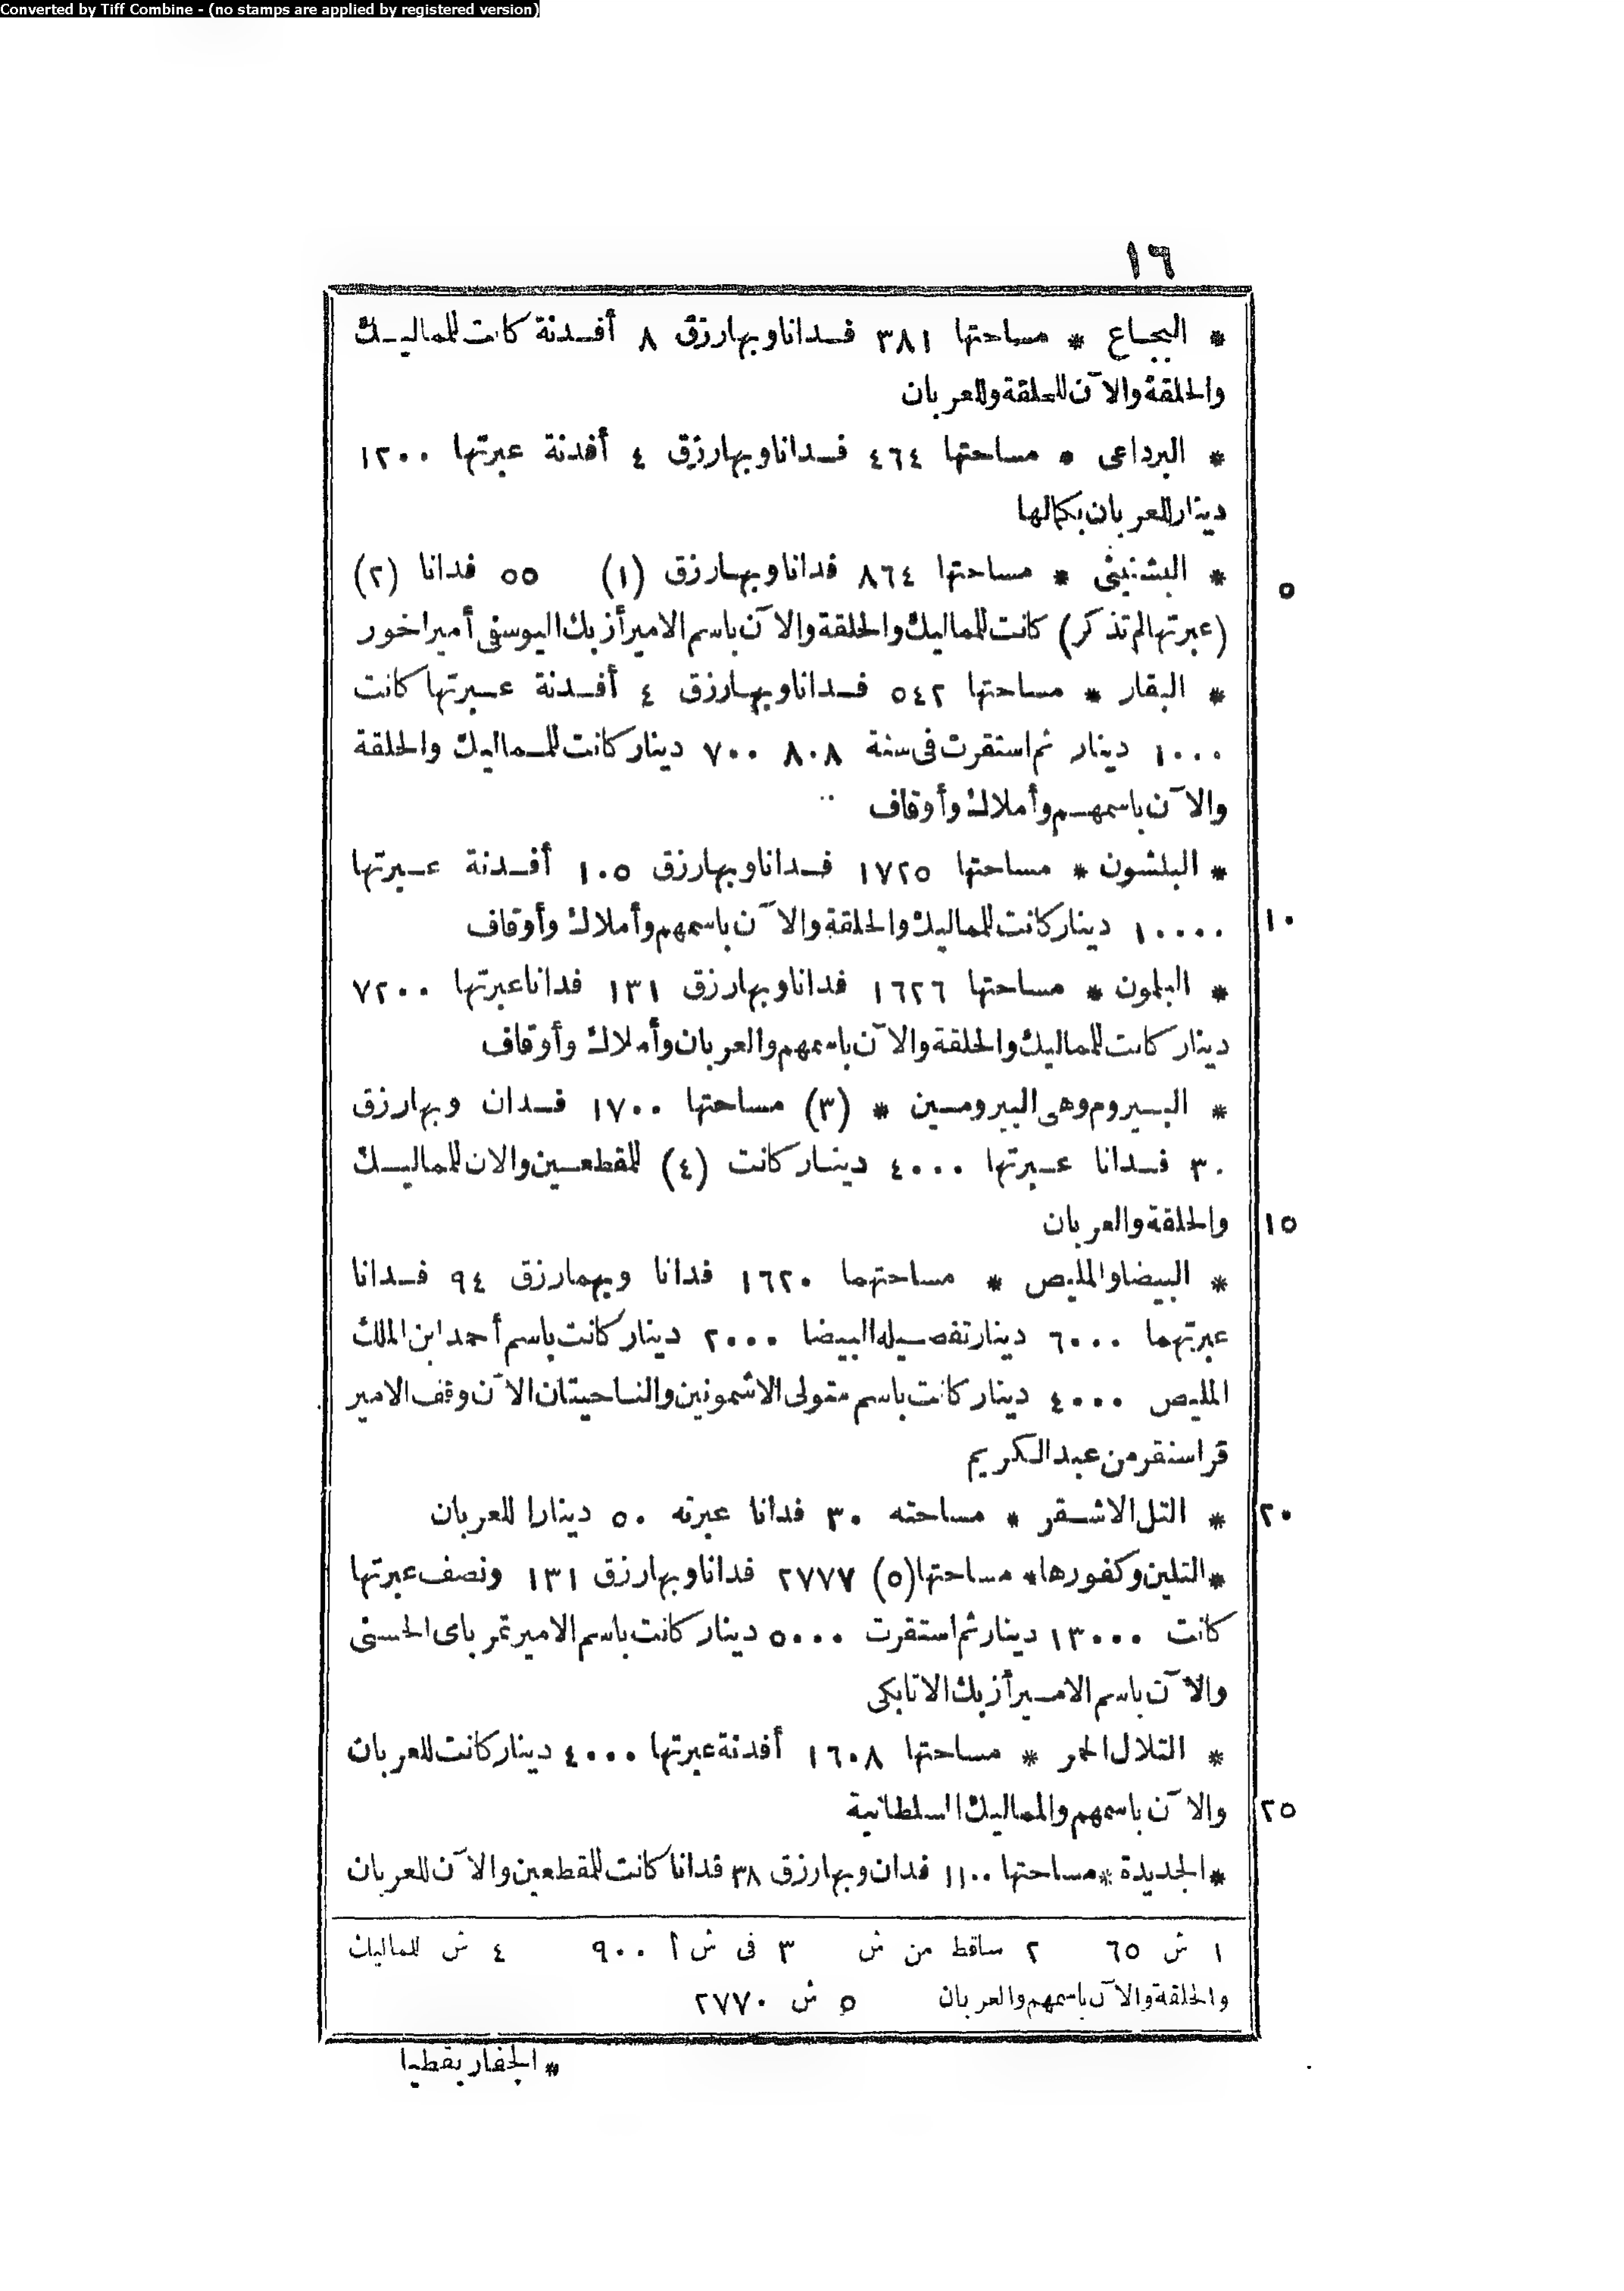 Converted by Tiff Combine - (no stamps are applied by registered version)
١٦
* البجاع * مساحتها ٣٨١ فدانا وبها رزق ٨ أفدنة كانت للماليك
والحلقة والآن للحلقة وللعربان
* البرداعى * مساحتها ٤٦٤ فدانا وبها رزق ٤ أفدنة عبرتها ١٢٠٠
دينار للعربان بكمالها
* البشنيثى * مساحتها ٨٦٤ فدانا وبها رزق (١) ٥٥ فدانا (٢)
(عبرتها لم تذكر) كانت للماليك والحلقة والآن باسم الامير أزبك اليوسفى أمير اخور
٥
* البقار * مساحتها ٥٤٢ فدانا وبها رزق ٤ أفدنة عبرتها كانت
١٠٠٠ دينار ثم استقرت فى سنة ٨٠٨ ٧٠٠ دينار كانت للماليك والحلقة
والآن باسمهم وأملاك وأوقاف
* البلشون * مساحتها ١٧٢٥ فدانا وبها رزق ١٠٥ أفدنة عبرتها
١٠٠٠٠ دينار كانت للماليك والحلقة والآن باسمهم وأملاك وأوقاف
١٠
* البلمون * مساحتها ١٦٢٦ فدانا وبها رزق ١٣١ فدانا عبرتها ٧٢٠٠
دينار كانت للماليك والحلقة والآن باسمهم والعربان وأملاك وأوقاف
* البيروم وهى البيرومين * (٣) مساحتها ١٧٠٠ فدان وبها رزق
٣٠ فدانا عبرتها ٤٠٠٠ دينار كانت (٤) للمقطعين والان للماليك
والحلقة والعربان
١٥
* البيضا والمليص * مساحتهما ١٦٢٠ فدانا وبهما رزق ٩٤ فدانا
عبرتهما ٦٠٠٠ دينار تفصيله البيضا ٢٠٠٠ دينار كانت باسم أحمد ابن الملك
المليص ٤٠٠٠ دينار كانت باسم متولى الاشمونين والناحيتان الآن وقف الامير
قراسنقر من عبد الكريم
* التل الاشقر * مساحته ٣٠ فدانا عبرته ٥٠ دينارا للعربان
٢٠
* التلين وكفورها * مساحتها (٥) ٢٧٧٧ فدانا وبها رزق ١٣١ ونصف عبرتها
كانت ١٣٠٠٠ دينار ثم استقرت ٥٠٠٠ دينار كانت باسم الامير تمرباى الحسنى
والآن باسم الامير أزبك الاتابكى
* التلال الحمر * مساحتها ١٦٠٨ أفدنة عبرتها ٤٠٠٠ دينار كانت للعربان
والآن باسمهم والماليك السلطانية
٢٥
* الجديدة * مساحتها ١١٠٠ فدان وبها رزق ٣٨ فدانا كانت للمقطعين والآن للعربان
١ ش ٦٥ ٢ ساقط من ش ٣ فى ش أ ٩٠٠ ٤ ش للماليك
والحلقة والآن باسمهم والعربان ٥ ش ٢٧٧٠
* الجفار بقطيا